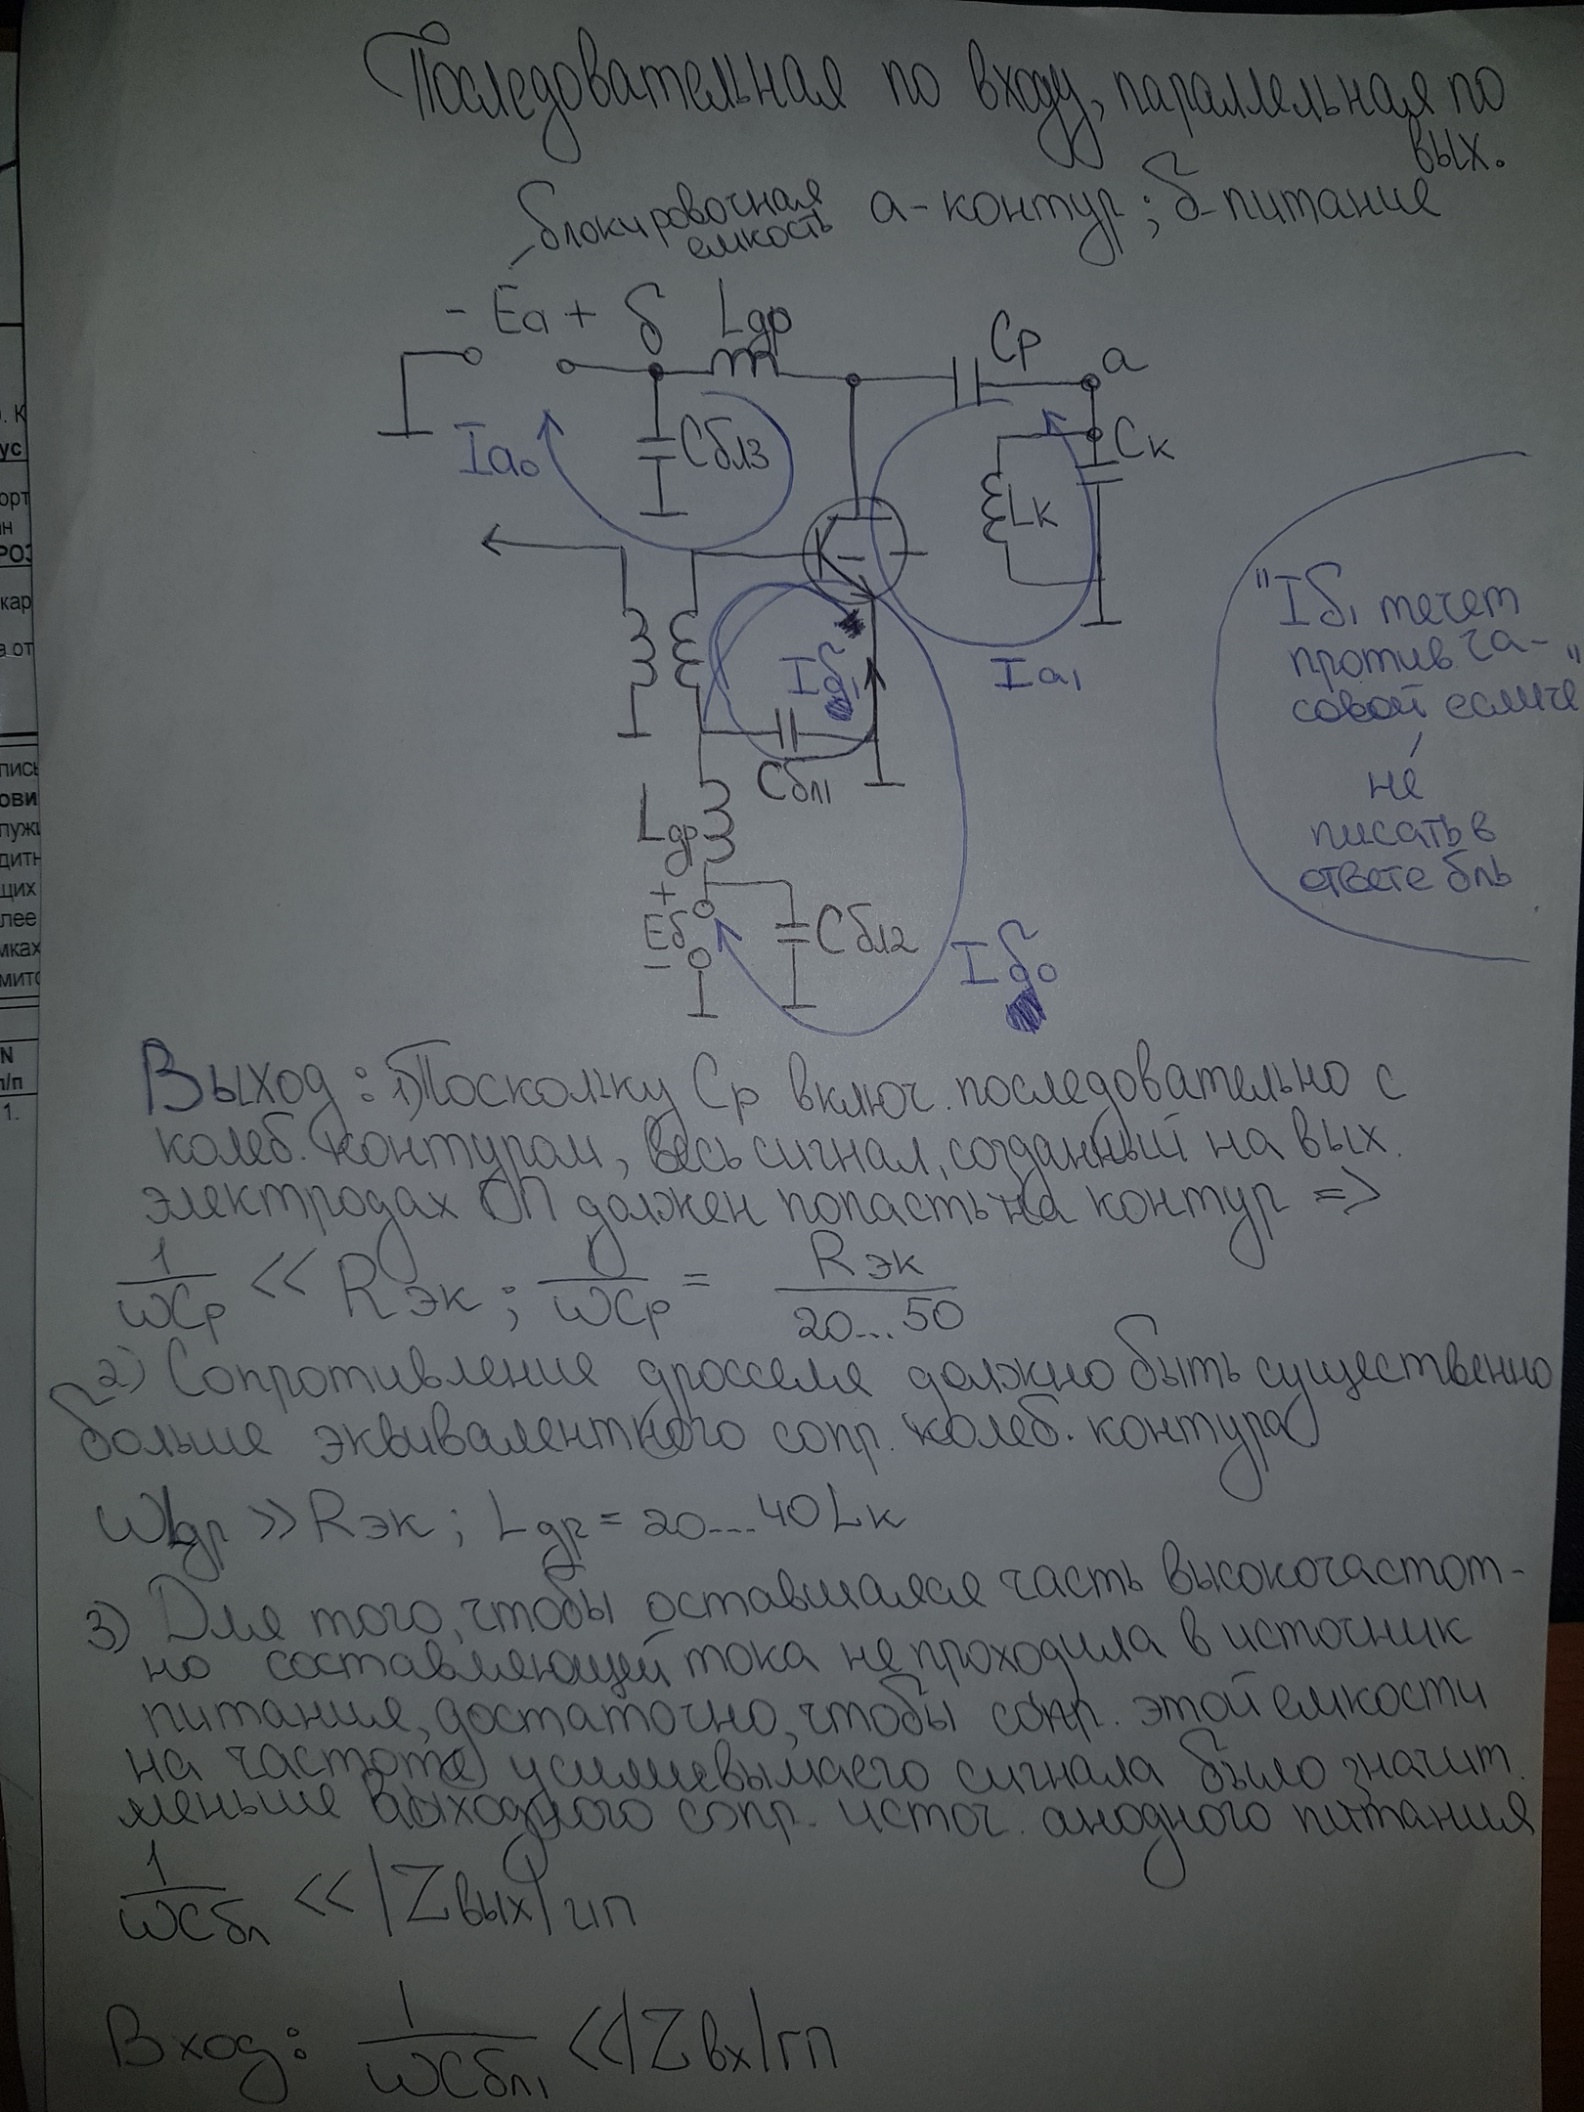 Последовательная по входу, параллельная по
вых.
блокировочная
емкость
а-контур; б-питание
- Eа + б Lдр
Cр а
Iа₀ Cбл3
Cк
Lк
Iб₁
Iа₁
Cбл1
Lдр
+
Eб
-
Cбл2
Iб₀
"Iб₁ течет
против ча-
совой если че"
не
писать в
ответе бль
Выход: 1) Поскольку Cр включ. последовательно с
колеб. контуром, весь сигнал, созданный на вых.
электродах ЭП должен попасть на контур =>
1/ωCр << Rэк ; 1/ωCр = Rэк/20...50
2) Сопротивление дросселя должно быть существенно
больше эквивалентного сопр. колеб. контура
ωLдр >> Rэк ; Lдр = 20...40Lк
3) Для того, чтобы оставшаяся часть высокочастот-
но составляющей тока не проходила в источник
питания, достаточно, чтобы сопр. этой емкости
на частоте сигнала было значит.
меньше выходного сопр. источ. анодного питания
1/ωCбл << |Zвых|ип
Вход: 1/ωCбл1 << |Zвх|гп
. К
ус
орт
ан
РОЗ
кар
а от
пись
ови
лужи
дить
щих
лее
мках
мито
N
п/п
1.